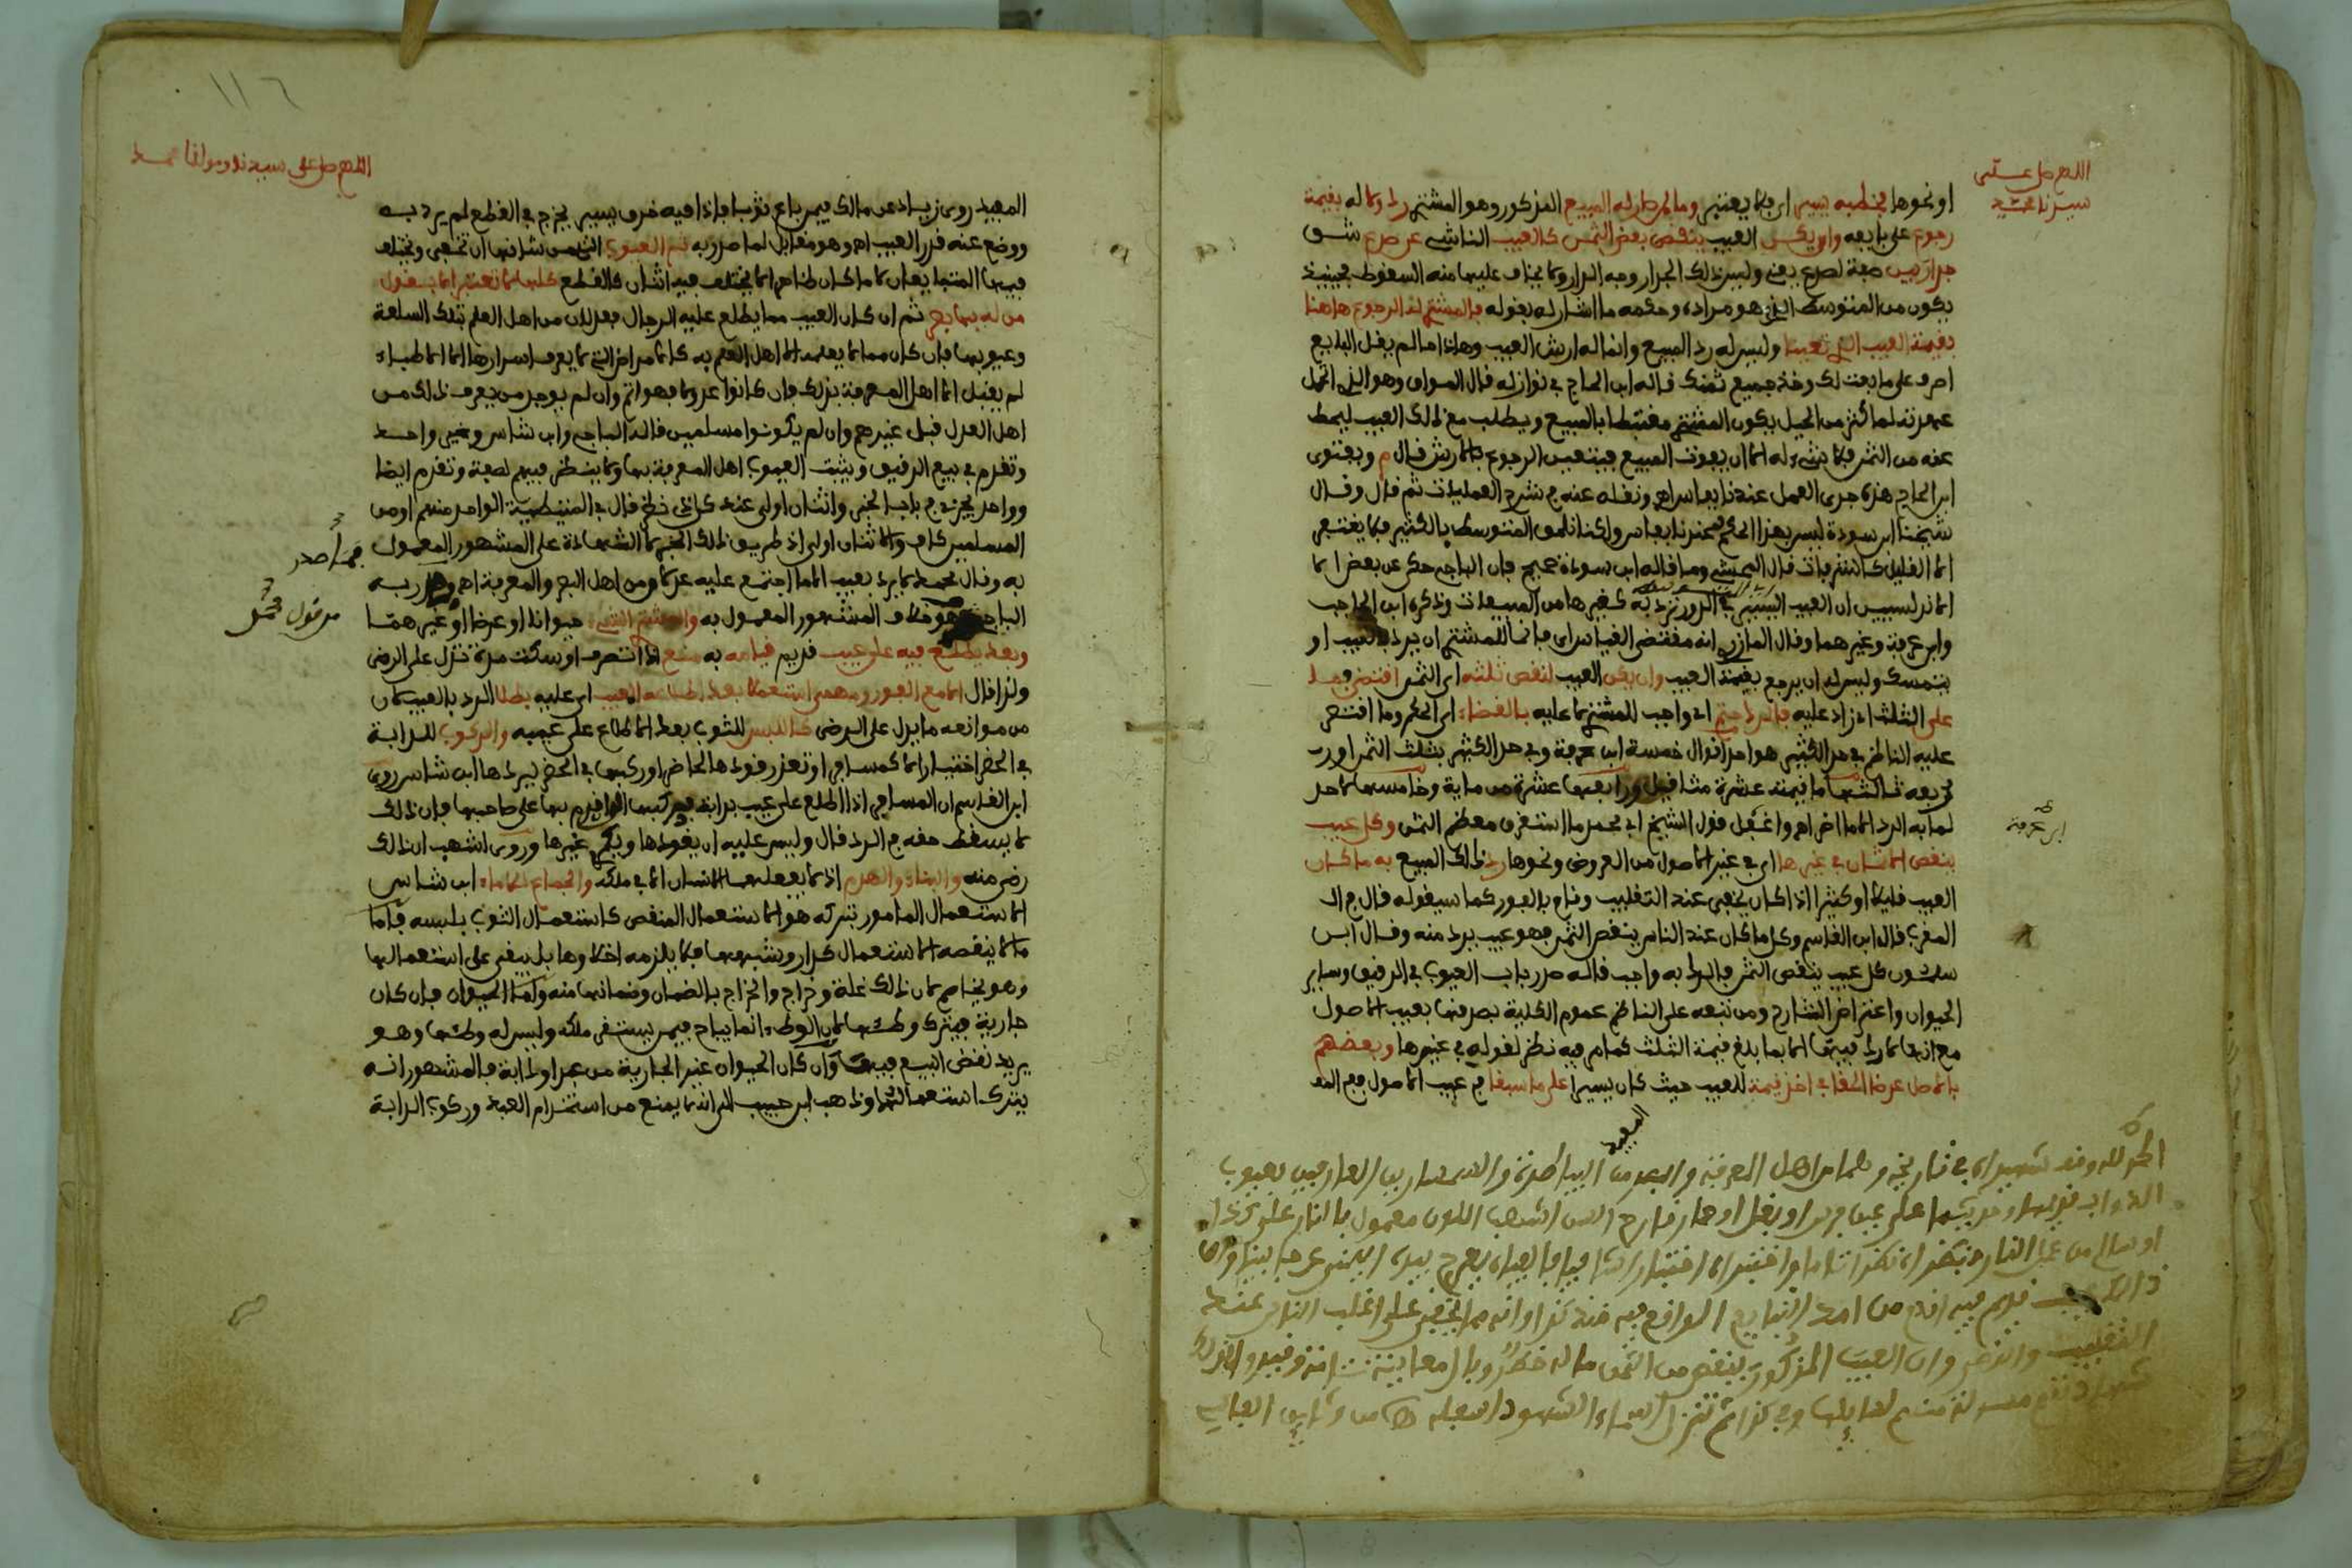 اللهم صل على
سيدنا محمد
او نحوها بخطبه يسير اي لا يعتبر وما لمرد له المبيع المذكور وهو المشتري رد ولا له بقيمة
رجوع على بايعه وان يكن العيب ينقص بعض الثمن كالعيب الناشي عن صدع شق
جدار بين صفة لصدع يعني وليس ذلك الجدار وجه الدار ولا يخاف عليها منه السقوط فحينئذ
يكون من المتوسط الذي هو مراده وحكمه ما اشار له بقوله فالمشتري له الرجوع هاهنا
بقيمة العيب الذي تعينا وليس له رد المبيع وانما له ارش العيب وهذا ما لم يقل البايع
اصرف على ما بعت لك وخذ جميع ثمنك قاله ابن الحاج في نوازله قال المواق وهو الذي اتحمل
عهدته لما كثر من الحيل يكون المشتري مغتبطا بالمبيع ويطلب مع ذلك العيب ليحط
عنه من الثمن فلا شيء له الا ان يفوت المبيع فيتعين الرجوع بالارش قال م وبفتوى
ابن الحاج هذه جرى العمل عندنا بفاس اهـ ونقله عنه في شرح العمليات ثم قال وقال
شيخنا ابن سودة ليس بهذا الحكم عندنا بفاس ولكنا نلحق المتوسط بالكثير فلا يغتفر
الا القليل كالشرفات قال وما قاله ابن سودة صحيح فان الباجي حكى عن بعض
الاندلسيين ان العيب اليسير في الدور ترد به كغيرها من المبيعات وذكره ابن الحاجب
وابن عرفة وغيرهما وقال المازري انه مقتضى القياس اي فانما للمشتري ان يرد بالعيب او
يتمسك وليس له ان يرجع بقيمة العيب وان يكن العيب لنقص ثلثه اي الثمن اقتضى فما
على الثلث اي زاد عليه فالرد حتم اي واجب للمشتري لا عليه بالقضاء اي الحكم وما اقتصر
عليه الناظم في حد الكثير هو احد اقوال خمسة ابن عرفة وفي حد الكثير بثلث الثمن او
ربعه ثالثها ما قيمته عشرة مثاقيل ورابعها عشرة من ماية وخامسها لا حد
لما به الرد الا ما اضر اهـ واغفل قول الشيخ ابي محمد ما استغرق معظم الثمن وكل عيب
ينقص الاثمان في غيرها اي في غير الاصول من العروض ونحوها رد ذلك المبيع به ما كان
العيب قليلا او كثيرا اذا كان يخفى عند التقليب وقام بالفور كما سيقوله قال في
المغرب قال ابن القاسم وكل ما كان عند الناس ينقص الثمن فهو عيب يرد منه وقال ابن
سلمون كل عيب ينقص الثمن فالرد به واجب قاله صدر باب العيوب في الرقيق وساير
الحيوان واعتراض الشارح ومن تبعه على الناظم عموم الكلية بصرفها بعيب الاصول
مع انها لا رد فيها الا بما بلغ قيمة الثلث كما مر فيه نظر لقوله في غيرها وبعضهم
بالاصل عرضا الحقا في اخذ قيمة للعيب حيث كان يسيرا على ما سبقا في عيب الاصول
المفيد
ابن عرفة
الحمد لله وقد شهيداه في تاريخه وهما من اهل المعرفة والبصر من البياطرة والسماسرين العارفين بعيوب
الدواب على عين فرس او بغل او حمار قارح السن اشهب اللون معمول بالنار على كذا
او سالم من عمل النار فنظراه نظرا تاما واختبراه اختبارا شافيا فالفياه يعرج بيده اليمنى عرجا بينا وان
ذلك عيب قديم فيه اقدم من امد التبايع الواقع فيه منذ كذا وانه مما يخفى على اغلب الناس عند
التقليب والنظر وان العيب المذكور ينقص من الثمن ما له خطر وبال معاينة وقيدوا لذلك
شهادتهم مسؤلة منهم لسايلها وفي كذا ثم تنزل اسماء الشهود

١١٦
اللهم صل على سيدنا ومولانا محمد
المفيد روى زياد عن مالك فيمن باع ثوبا فاذا فيه خرق يسير يخرج في القطع لم يرد به
ووضع عنه قدر العيب اهـ وهو مقابل لما صدر به ثم العيوب التي من شانها ان تخفى ويختلف
فيها المتبايعان لا ما كان ظاهرا لا يختلف فيه اثنان كالقطع كلها لا تعتبر الا بقول
من له بها بصر ثم ان كان العيب مما يطلع عليه الرجال فعدلان من اهل العلم بتلك السلعة
وعيوبها فان كان مما لا يعلمه الا اهل العلم به كالامراض التي لا يعرف اسرارها الا الاطباء
لم يقبل الا اهل المعرفة بذلك فان كانوا عدولا فهو اتم وان لم يوجد من يعرف ذلك من
اهل العدل قبل غيرهم وان لم يكونوا مسلمين قاله الباجي وابن شاس وغير واحد
وتقدم في بيع الرقيق ويثبت العيوب اهل المعرفة بها ولا ينظر فيهم لصفة وتقدم ايضا
وواحد يجزي في باب الخبر واثنان اولى عند كل ذي نظر قال في المتيطية الواحد منهم او من
المسلمين كاف والاثنان اولى اذ طريق ذلك الخبر لا الشهادة على المشهور المعمول
به وقال محمد لا يرد بعيب الا ما اجتمع عليه عدلان من اهل البصر والمعرفة اهـ
الباجي وهو خلاف المشهور المعمول به والمشتري الشيء حيوانا او عرضا او غيرهما
وبعد يطلع فيه على عيب قديم قيامه به منع اذا تصرف او سكت مدة تدل على الرضى
ولذا قال الا مع الفور ومهما استعملا بعد اطلاعه المعيب اي عليه بطلا الرد بالعيب لان
من موانعه ما يدل على الرضى كاللبس للثوب بعد الاطلاع على عيبه والركوب للدابة
في الحضر اختيارا لا كمسافر او تعذر قودها لحاضر او ركبها في الحضر ليردها ابن شاس روى
ابن القاسم ان المسافر اذا اطلع على عيب بدابة فركبها الى ان قدم بها على صاحبها فان ذلك
لا يسقط حقه في الرد قال وليس عليه ان يقودها ويكري غيرها وروى اشهب ان ذلك
رضى منه والبناء والهدم اذ لا يفعلها الانسان الا في ملكه والجماع للاماء ابن شاس
الاستعمال المامور بتركه هو الاستعمال المنقص كاستعمال الثوب بلبسه فاما
ما لا ينقصه الاستعمال كدار وشبهها فلا يلزمه اخلاوها بل يبقى على استعمالها
وهو يخاصم لان ذلك غلة وخراج والخراج بالضمان وضمانها منه واما الحيوان فان كان
جارية فيترك وطئها لان الوطء انما يباح فيمن يستقر ملكه وليس له وطئها وهو
يريد نقض البيع فيها وان كان الحيوان غير الجارية من عبد او دابة فالمشهور انه
يترك استعمالها وذهب ابن حبيب الى انه لا يمنع من استخدام العبد وركوب الدابة